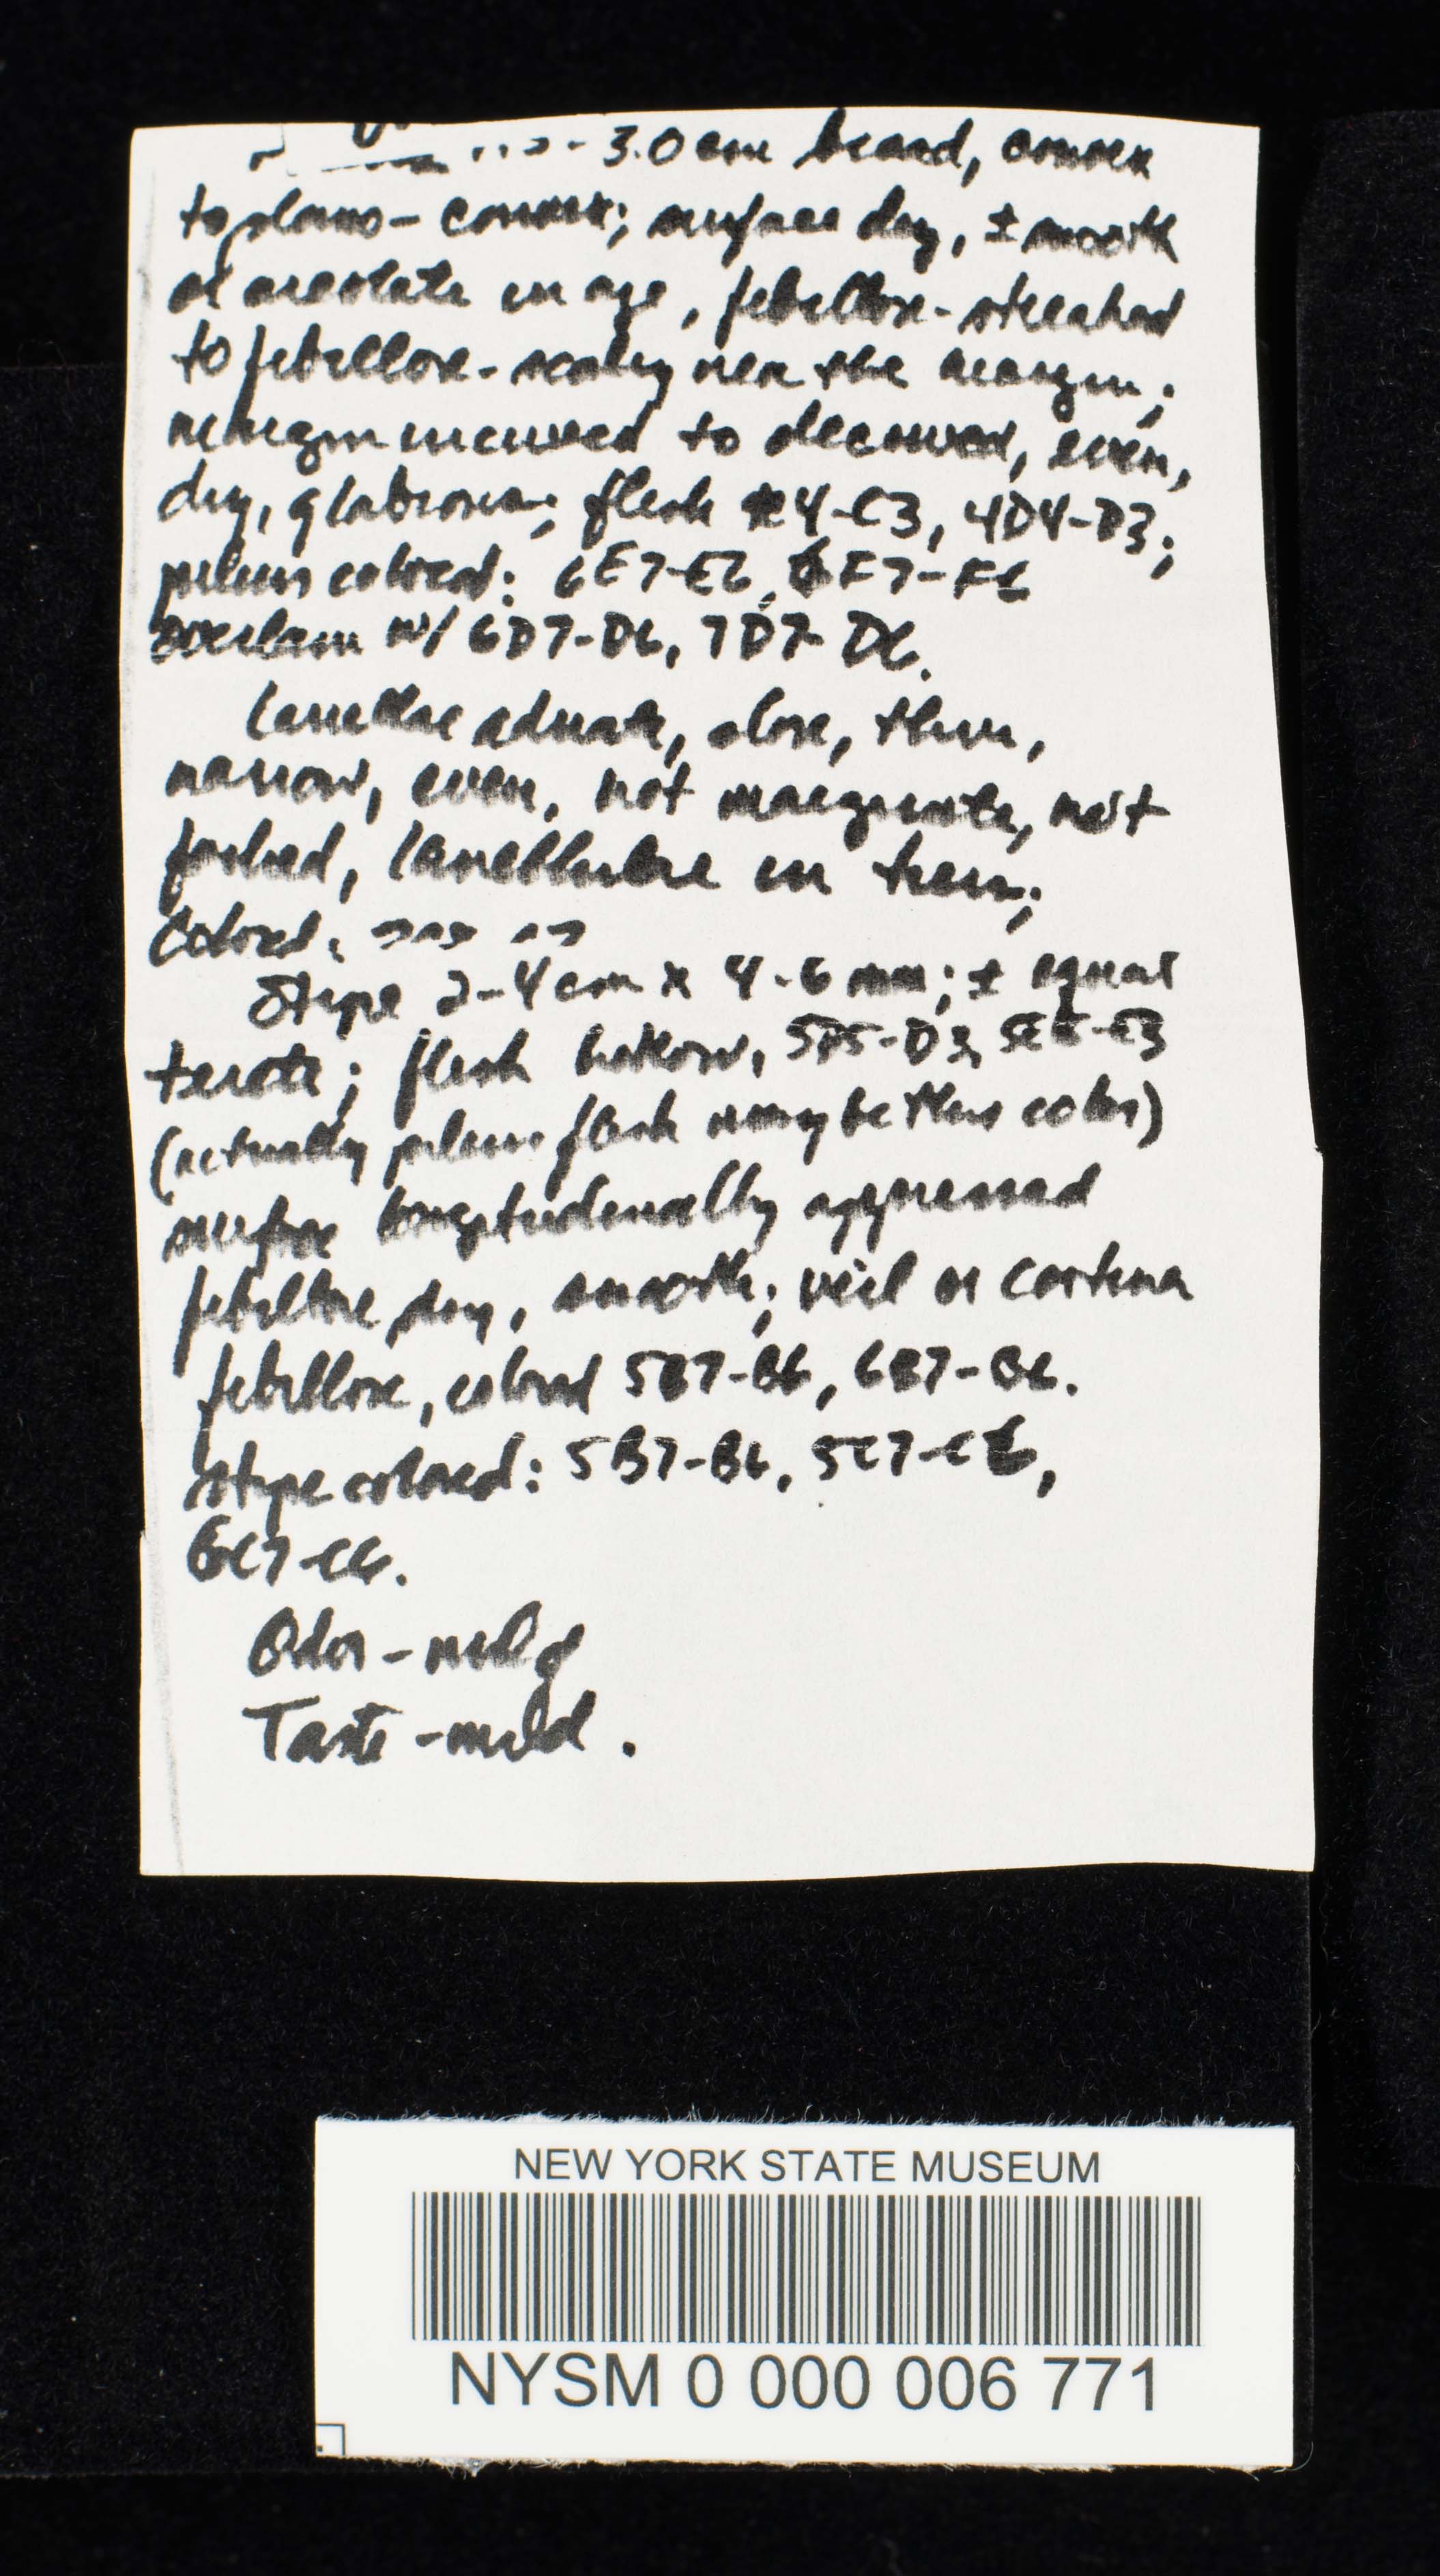 - 3.0 cm broad, convex
to plano-convex; surface dry, ± smooth
or areolate in age, fibrillose-streaked
to fibrillose-scaly near the margin;
margin incurved to decurved, even,
dry, glabrous; flesh 4-C3, 4D4-D3;
pileus colored: 6E7-E6, 6F7-F6
overlain w/ 6D7-D6, 7D7-D6.
Lamellae adnate, close, thin,
narrow, even, not marginate, not
forked, lamellulae in tiers;
Colored:
Stipe 2-4 cm x 4-6 mm; ± equal
terete; flesh hollow, 5D5-D3, 5E5-E3
(actually pileus flesh may be this color)
surface longitudinally appressed
fibrillose, dry, smooth; veil or cortina
fibrillose, colored 5B7-B6, 6B7-B6.
Stipe colored: 5B7-B6, 5C7-C6,
6C7-C6.
Odor - mild
Taste - mild.
NEW YORK STATE MUSEUM
NYSM 0 000 006 771